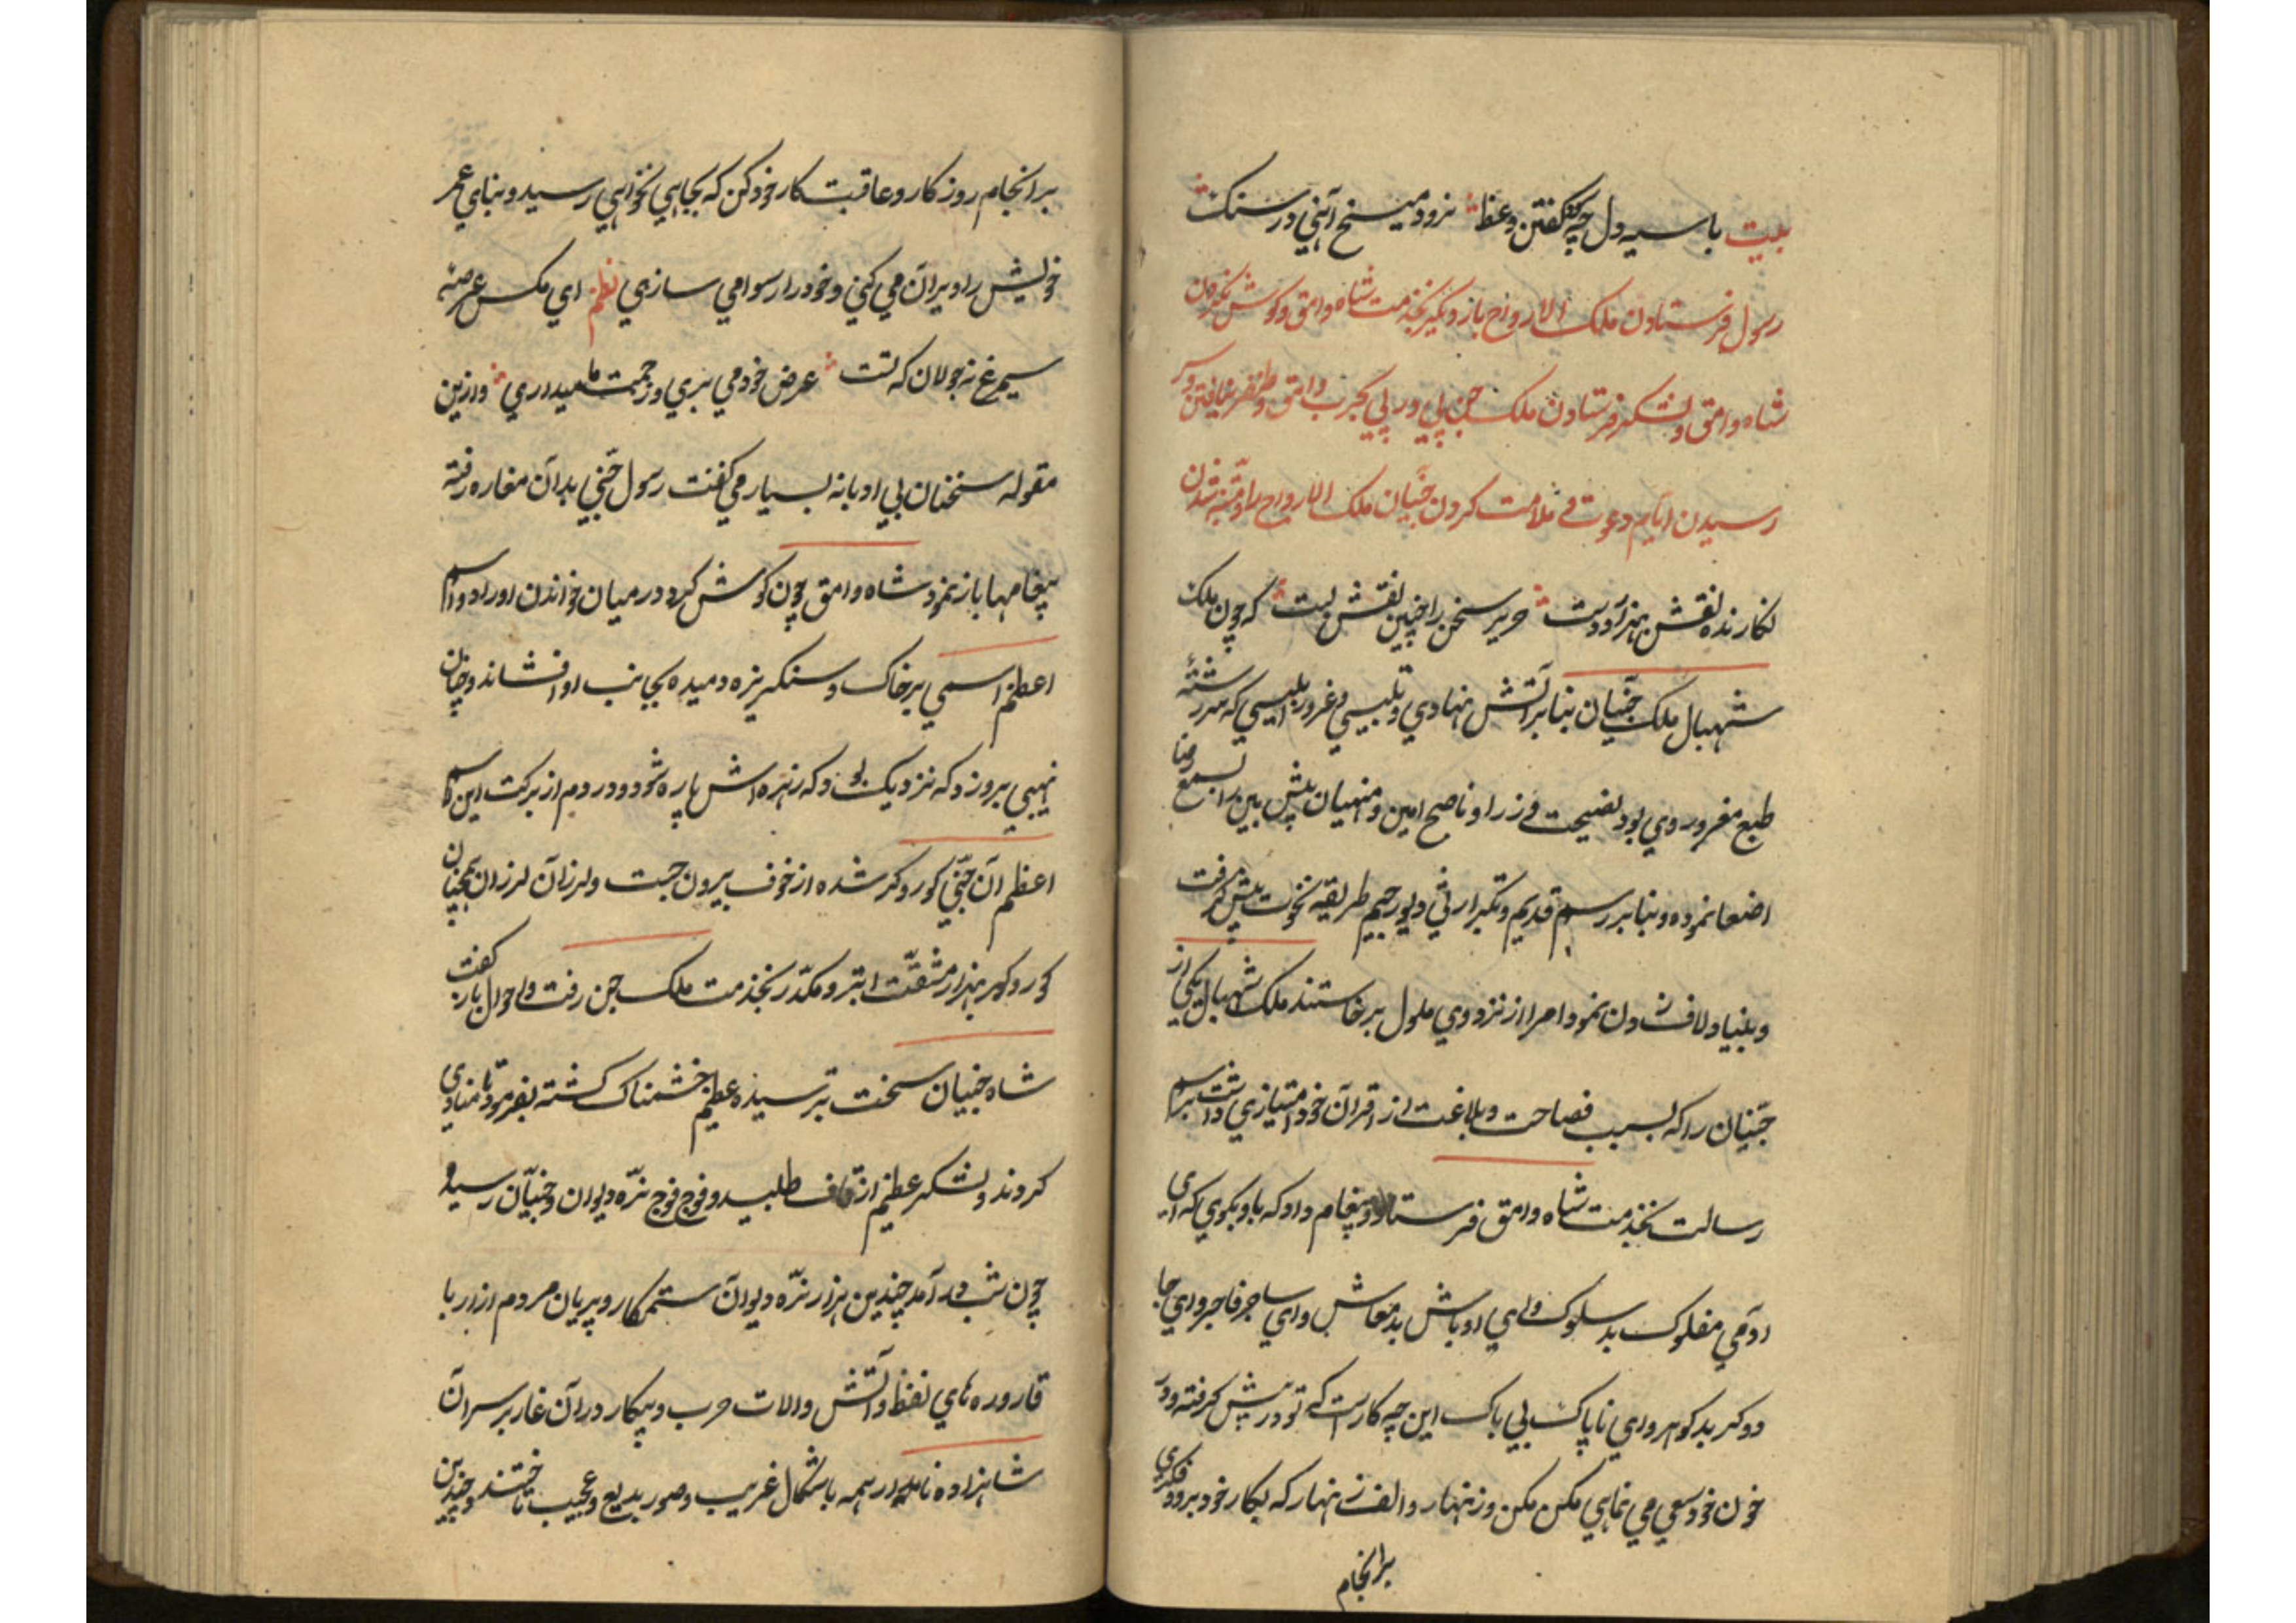 بیت با سیه دل چه گفتن وعظ نرود میخ آهنی در سنک
رسول فرستادن ملک الارواح باز دیگر بخدمت شاه وامق و کوش نکردن
شاه وامق و لشکر فرستادن ملک جن پی در پی بحرب وامق و ظفر نیافتن و سر
رسیدن ایام دعوت و ملامت کردن جنیان ملک الارواح را و متنبه شدن
نکارنده نقش حریر سخن را چنین نقش بست که چون ملک
شهبال ملک جنیان بنابر آتش نهادی و تلبیسی و غرور ابلیسی که سررشته
طبع مغرور وی بود نصیحت وزرا و ناصح امین و منهیان پیش بین را بسمع رضا
اصغا نموده و بنابر رسم قدیم و تکبر ارثی دیو رجیم طریقه نخوت پیش کرفت
و بنیاد لاف زدن نمود امرا از نزد وی ملول برخاستند ملک شهبال یکی از
جنیان را که بسبب فصاحت و بلاغت از اقران خود امتیازی داشت برسم
رسالت بخدمت شاه وامق فرستاد و پیغام داد که باو بکوی که ای
آدمی مفلوک بد سلوک و ای اوباش بد معاش و ای ساحر فاجر و ای جا
دوکر بد کوهر و ای ناپاک بی باک این چه کارست که تو در پیش کرفته و در
خون خود سعی می نمایی مکن مکن و زنهار و الف زنهار که بکار خود برو و فکری
برانجام
برانجام روز کار و عاقبت کار خود کن که بجایی نخواهی رسید و بنای عمر
خویش را ویران می کنی و خود را رسوا می سازی نظم ای مکس عرصه
سیمرغ نه جولان که تست عرض خود می بری و زحمت ما میداری و ازین
مقوله سخنان بی ادبانه بسیار می کفت رسول جنی بدان مغاره رفته
پیغامها باز نمود شاه وامق چون کوش کرد در میان خواندن اوراد و اسم
اعظم اسمی بر خاک و سنکریزه دمیده بجانب او افشاند و چنان
نهیبی برو زد که نزدیک بود که زهره اش پاره شود و در دم از برکت این اسم
اعظم آن جنی کور و کر شده از خوف بیرون جست و لرزان لرزان همچنان
کور و کر بهزار مشقت ابتر و مکدر بخدمت ملک جن رفت و احوال باز کفت
شاه جنیان سخت بترسیده عظیم خشمناک کشته بفرمود تا منادی
کردند و لشکر عظیم از قاف طلبید و فوج فوج نره دیوان و جنیان رسید
چون شب در آمد چندین هزار نره دیوان ستمکار و پریان مردم آزار با
قاروره های نفط و آتش و الات حرب و پیکار در آن غار بر سر آن
شاهزاده نامدار همه باشکال غریب و صور بدیع و عجیب تاختند و چندین